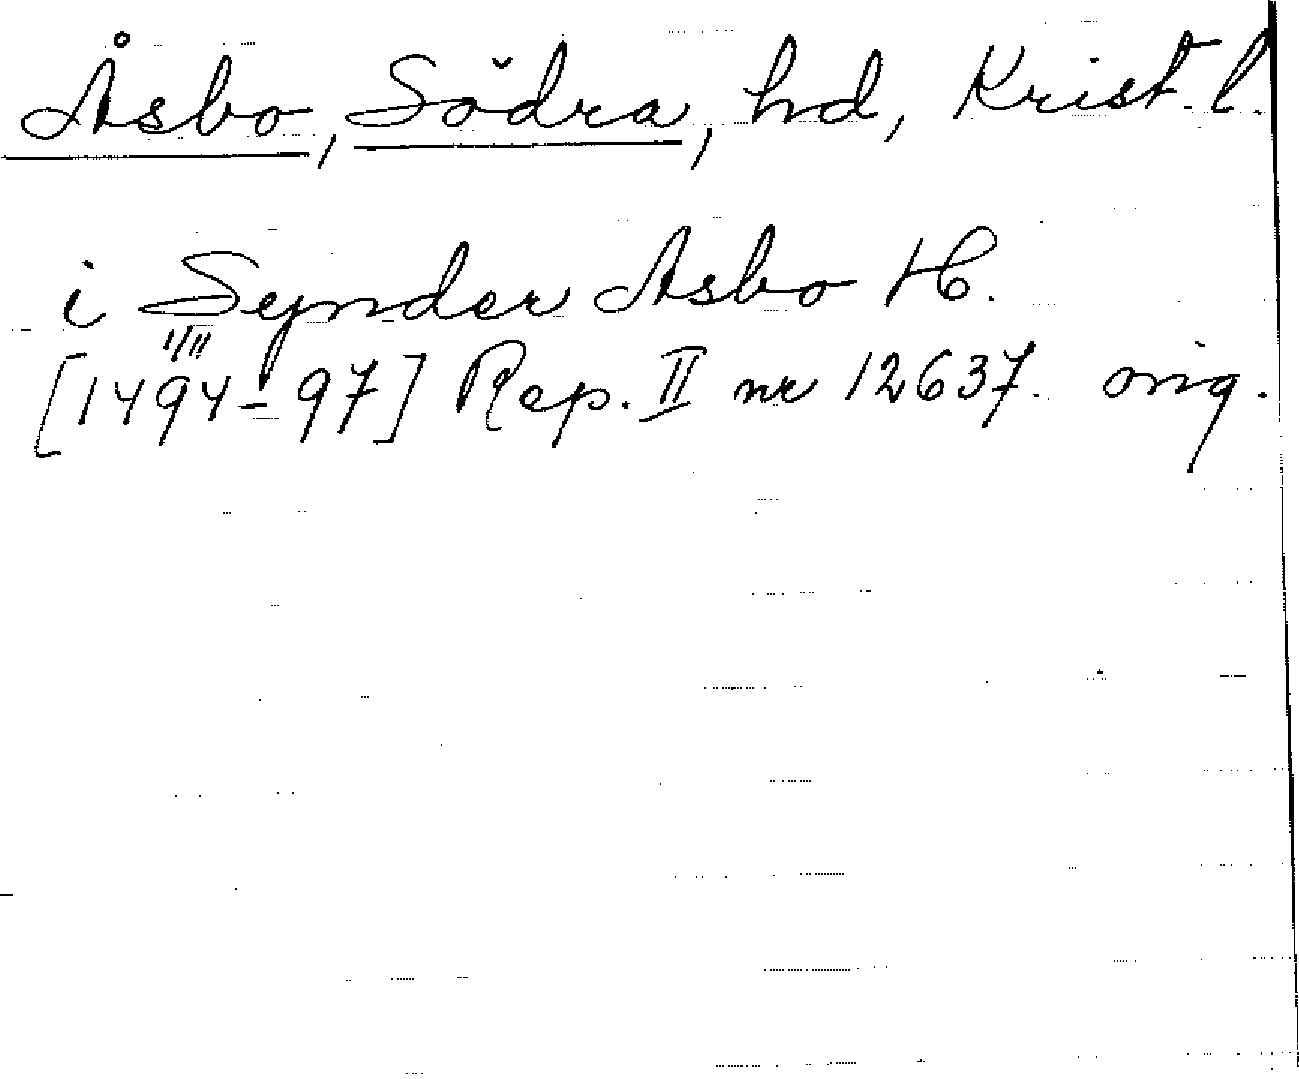 Åsbo, Södra, hd, Krist. l.
i Synder Asbo H.
1/11
[1494-97] Rep. II nr 12637. orig.